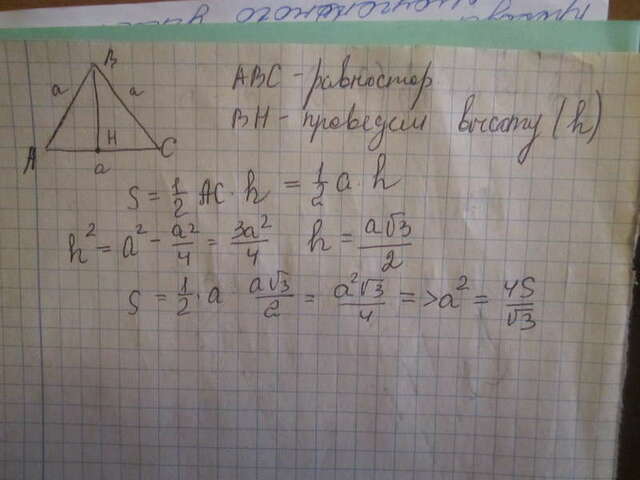 B
a a
ABC - равностор.
BH - проведем высоту (h)
A H C
a
S = 1/2 AC · h = 1/2 a · h
h² = a² - a²/4 = 3a²/4 h = a√3/2
S = 1/2 · a a√3/2 = a²√3/4 => a² = 4S/√3